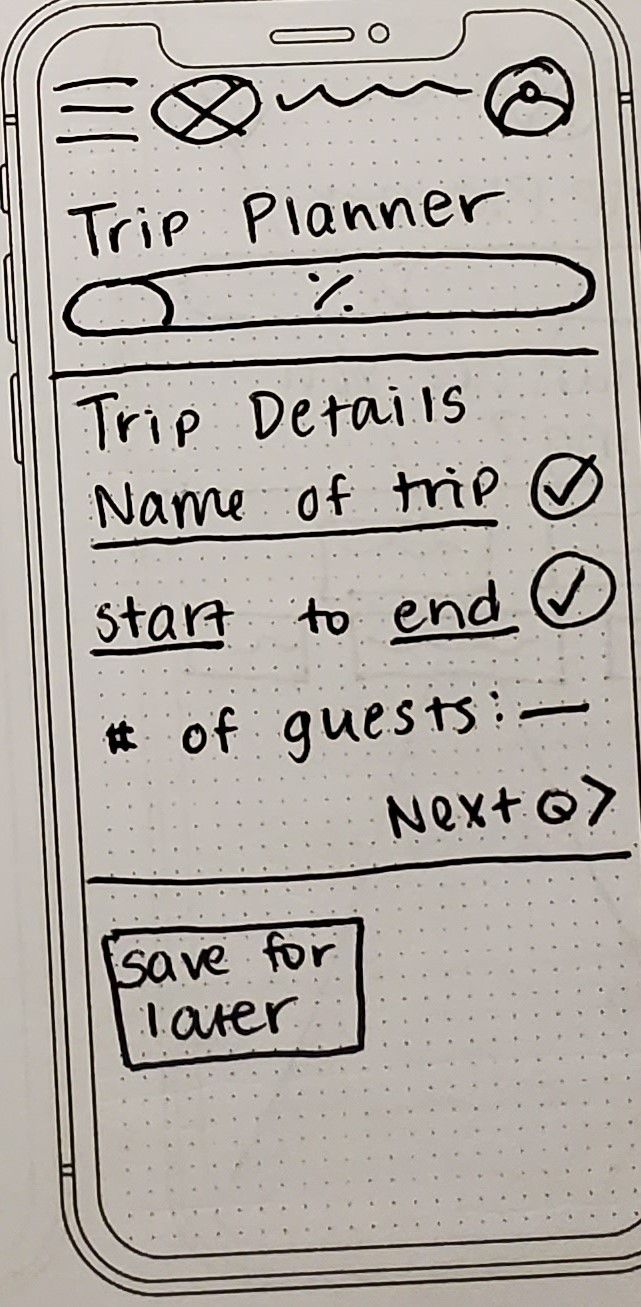 Trip Planner
%
Trip Details
Name of trip
start to end
# of guests: —
Next Q >
save for
later